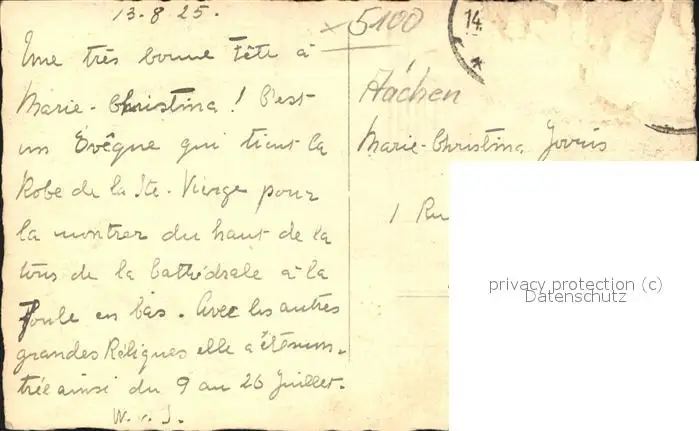 13.8.25.
Une très bonne fête à
Marie-Christina! C'est
un Evêque qui tient la
Robe de la Ste. Vierge pour
la montrer du haut de la
tour de la Cathédrale à la
Foule en bas. Avec les autres
grandes Réliques elle a été mon-
trée ainsi du 9 au 26 Juillet.
W. v. J.
5100
14
Aachen
Marie-Christina
1 Ru
privacy protection (c)
Datenschutz